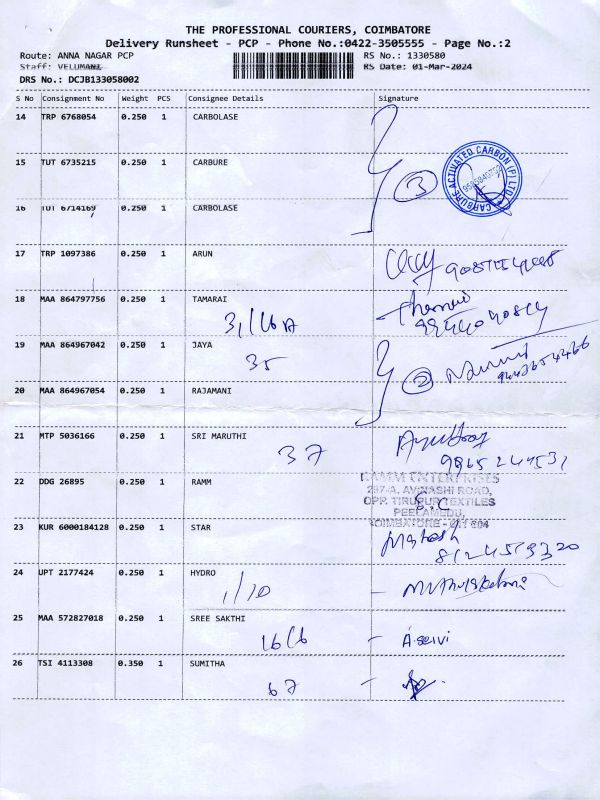 THE PROFESSIONAL COURIERS, COIMBATORE
Delivery Runsheet - PCP - Phone No.:0422-3505555 - Page No.:2
Route: ANNA NAGAR PCP RS No.: 1330580
Staff: VELUMANI RS Date: 01-Mar-2024
DRS No.: DCJB133058002
S No Consignment No Weight PCS Consignee Details Signature
14 TRP 6768054 0.250 1 CARBOLASE
15 TUT 6735215 0.250 1 CARBURE
3
CARBURE ACTIVATED CARBON (P) LTD
16 TUT 6714169 0.250 1 CARBOLASE
17 TRP 1097386 0.250 1 ARUN
18 MAA 864797756 0.250 1 TAMARAI
31/16A
19 MAA 864967042 0.250 1 JAYA
35
2
20 MAA 864967054 0.250 1 RAJAMANI
21 MTP 5036166 0.250 1 SRI MARUTHI
37
22 DDG 26895 0.250 1 RAMM
RAMM ENTERPRISES
297-A, AVINASHI ROAD,
OPP. TIRUPUR TEXTILES
PEELAMEDU,
COIMBATORE - 641 004
23 KUR 6000184128 0.250 1 STAR
8124519320
24 UPT 2177424 0.250 1 HYDRO
1/10
25 MAA 572827018 0.250 1 SREE SAKTHI
16/6 - A.selvi
26 TSI 4113308 0.350 1 SUMITHA
67 -